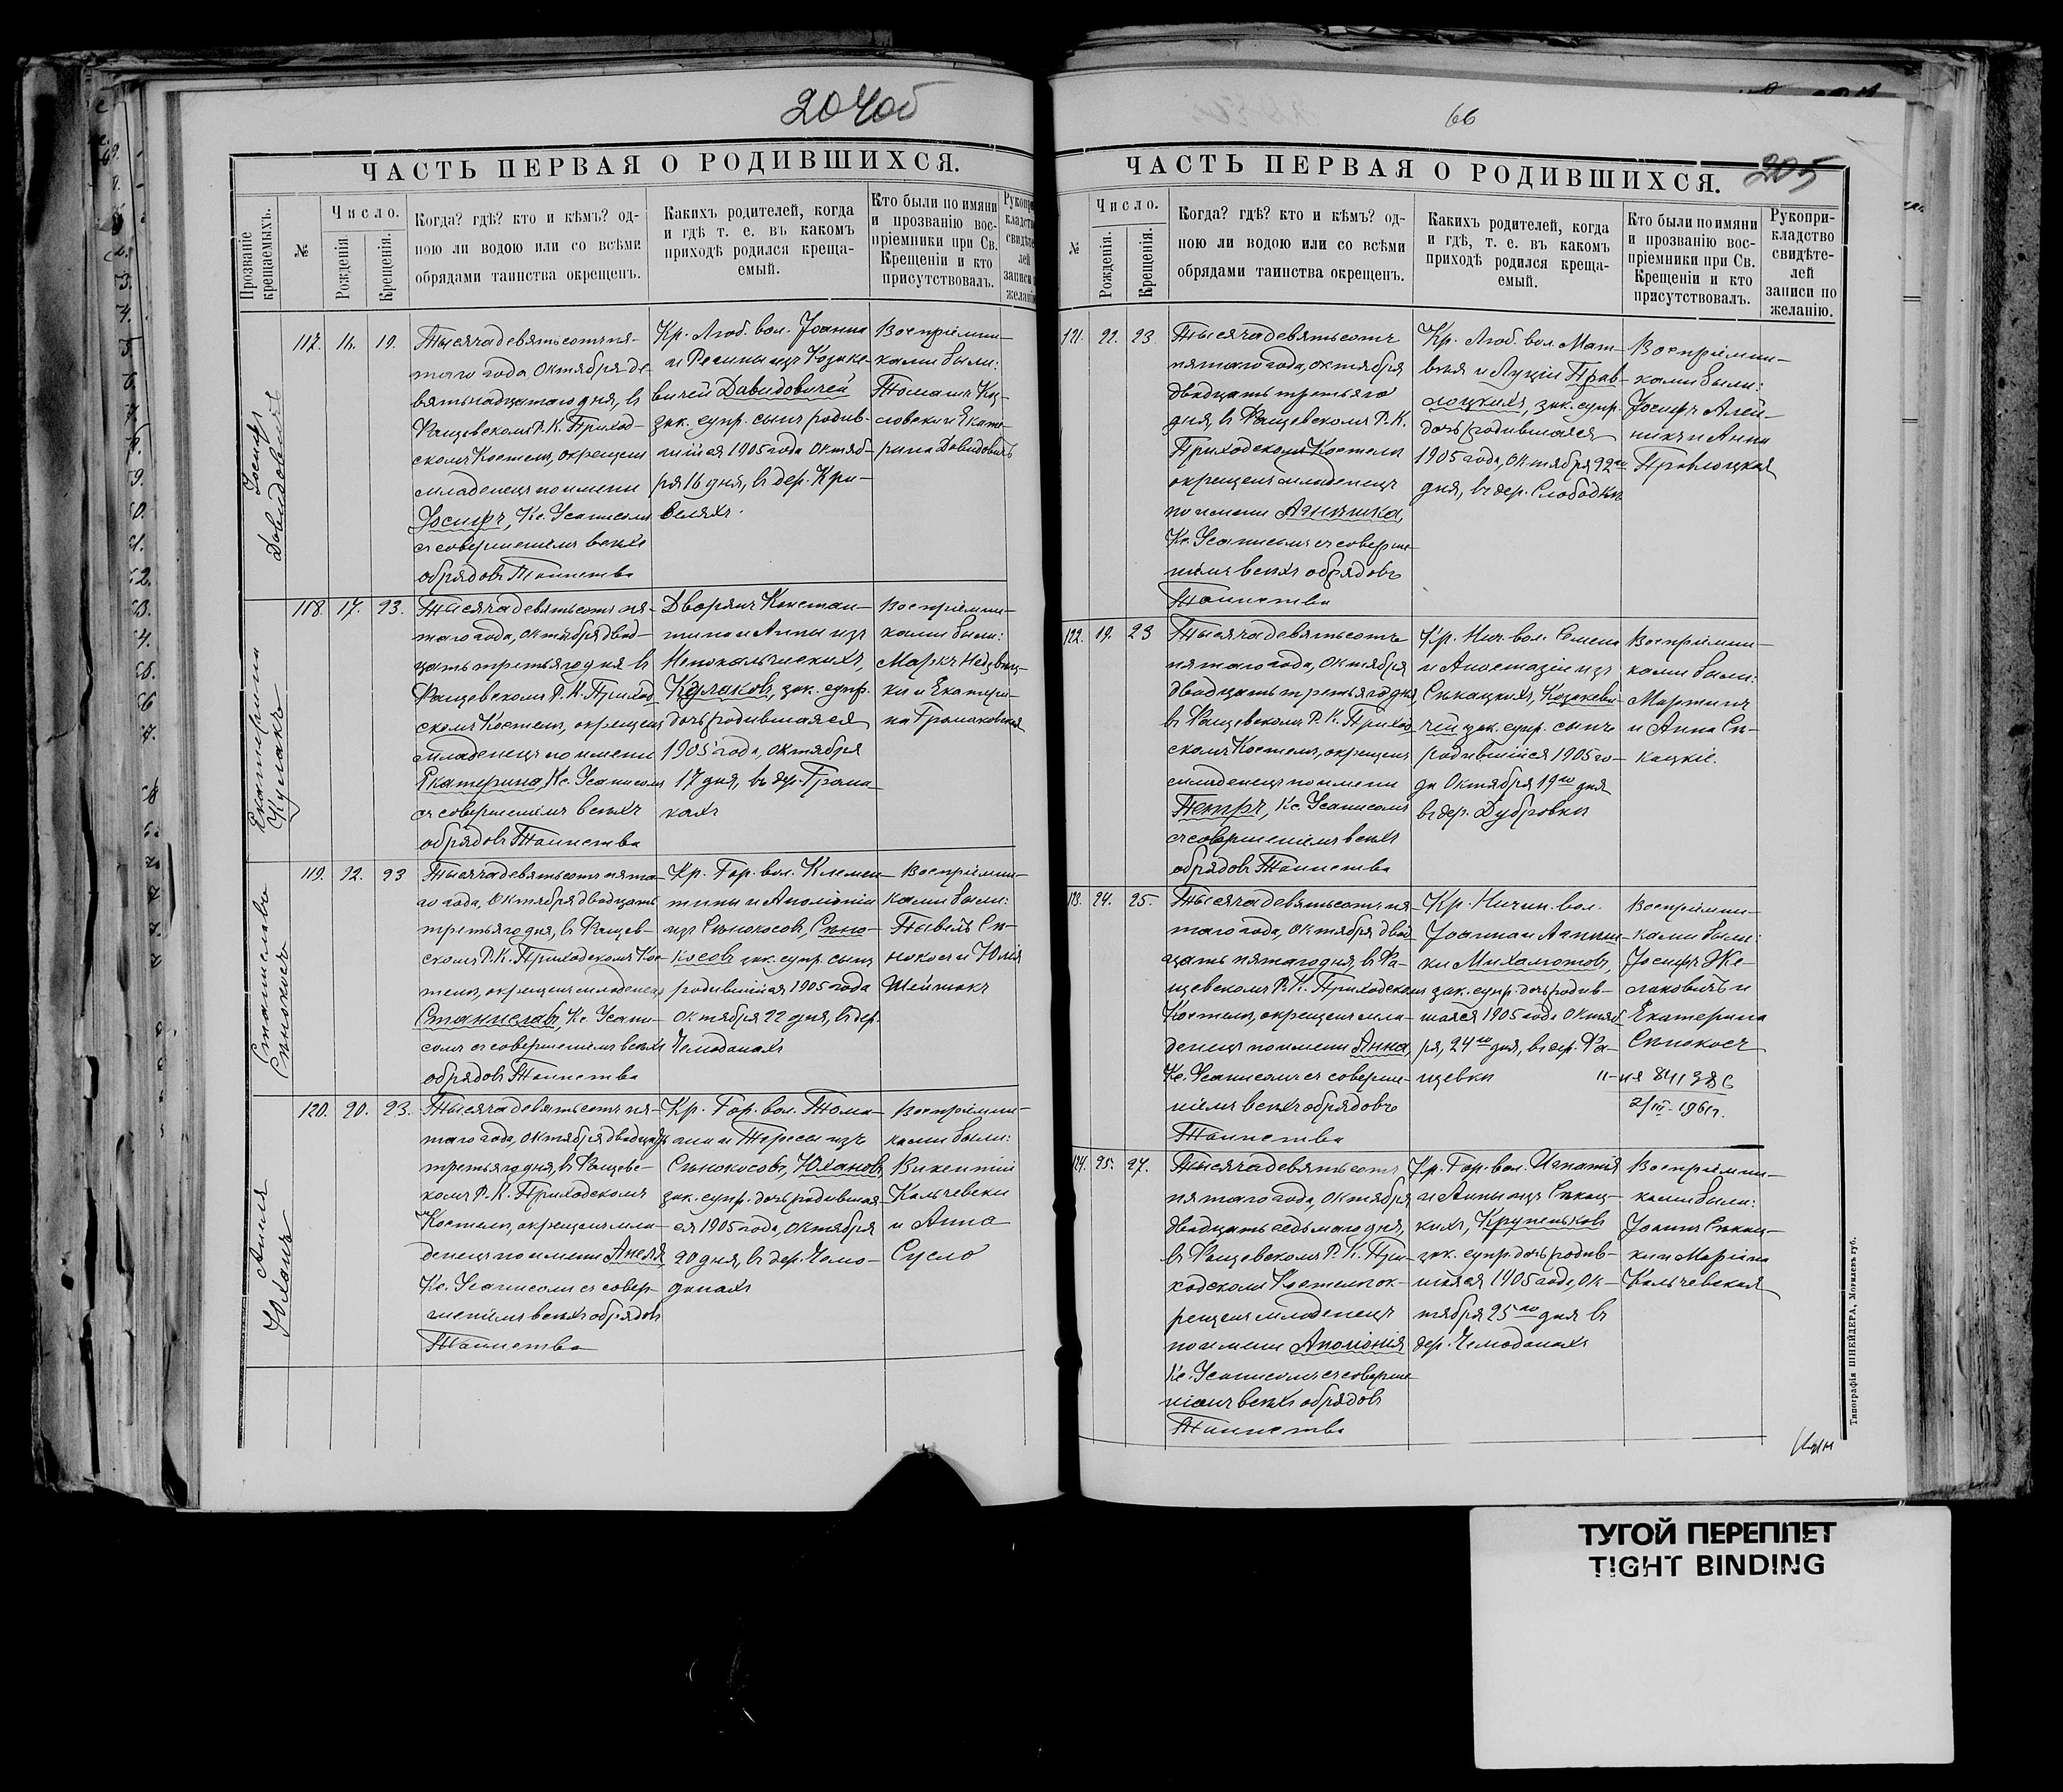 204об
ЧАСТЬ ПЕРВАЯ О РОДИВШИХСЯ.
Прозваніе крещаемыхъ.
№
Число.
Рожденія.
Крещенія.
Когда? гдѣ? кто и кѣмъ? од-
ною ли водою или со всѣми
обрядами таинства окрещенъ.
Какихъ родителей, когда
и гдѣ т. е. въ какомъ
приходѣ родился креща-
емый.
Кто были по имяни
и прозванію вос-
пріемники при Св.
Крещеніи и кто
присутствовалъ.
Іосифъ
Давидовичъ
117. 16. 19.
Тысяча девятьсотъ пя-
таго года, Октября де-
вятнадцатаго дня, въ
Фащевскомъ Р. К. Приход-
скомъ Костелѣ, окрещенъ
младенецъ по имени
Іосифъ, Кс. Усанисомъ
съ совершеніемъ всѣхъ
обрядовъ Таинства
Кр. Люб. вол. Іоанна
и Регины изъ Козаке-
вичей Давидовичей
зак. супр. сынъ родив-
шійся 1905 года Октяб-
ря 16 дня, въ дер. Кри-
Воспріемни-
ками были:
Томашъ Коз-
ловскі и Екате-
рина Давидовичъ
Екатерина
Кулакъ
118. 17. 23.
Тысяча девятьсотъ пя-
таго года, Октября двад-
цать третьяго дня въ
Фащевскомъ Р. К. Приход-
скомъ Костелѣ, окрещенъ
младенецъ по имени
Екатерина, Кс. Усанисомъ
съ совершеніемъ всѣхъ
обрядовъ Таинства
Дворянъ Констан-
тина и Анны изъ
Непокальчискихъ,
Кулаковъ, зак. супр.
дочь родившаяся
1905 года, Октября
17 дня, въ дер. Грома-
кахъ
Воспріемни-
ками были:
Маркъ Недзвец-
ки и Екатери-
на Громаковская
Станиславъ
Сѣнокосъ
119. 22. 23
Тысяча девятьсотъ пята-
го года, Октября двадцать
третьяго дня, въ Фащев-
скомъ Р. К. Приходскомъ Кос-
телѣ, окрещенъ младенецъ
Станиславъ, Кс. Усани-
сомъ съ совершеніемъ всѣхъ
обрядовъ Таинства
Кр. Гор. вол. Клемен-
тины и Аполоніи
изъ Сѣнокосовъ, Сѣно-
косовъ зак. супр. сынъ
родившійся 1905 года
Октября 22 дня, въ дер.
Чемоданахъ
Воспріемни-
ками были:
Павелъ Сѣ-
нокосъ и Юлія
Шейнокъ
Анеля
Юханъ
120. 20. 23.
Тысяча девятьсотъ пя-
таго года, Октября двадцать
третьяго дня, въ Фащевс-
комъ Р. К. Приходскомъ
Костелѣ, окрещенъ мла-
денецъ по имени Анеля
Кс. Усанисомъ съ совер-
шеніемъ всѣхъ обрядовъ
Таинства
Кр. Гор. вол. Тома-
ша и Тересы изъ
Сѣнокосовъ, Юхановъ,
зак. супр. дочь родившая-
ся 1905 года, Октября
20 дня, въ дер. Чемо-
данахъ
Воспріемни-
ками были:
Викентій
Кальчевски
и Анна
Сусло
66
205
ЧАСТЬ ПЕРВАЯ О РОДИВШИХСЯ.
№
Число.
Рожденія.
Крещенія.
Когда? гдѣ? кто и кѣмъ? од-
ною ли водою или со всѣми
обрядами таинства окрещенъ.
Какихъ родителей, когда
и гдѣ, т. е. въ какомъ
приходѣ родился креща-
емый.
Кто были по имяни
и прозванію вос-
пріемники при Св.
Крещеніи и кто
присутствовалъ.
Рукопри-
кладство
свидѣте-
лей
записи по
желанію.
121. 22. 23
Тысяча девятьсотъ
пятаго года, Октября
двадцать третьяго
дня, въ Фащевскомъ Р. К.
Приходскомъ Костелѣ
окрещенъ младенецъ
по имени Агнѣшка,
Кс. Усанисомъ съ соверше-
ніемъ всѣхъ обрядовъ
Таинства
Кр. Люб. вол. Мат-
вѣя и Луціи Прав-
лоцкихъ, зак. супр.
дочь родившаяся
1905 года, Октября 22го
дня, въ дер. Слободкѣ
Воспріемни-
ками были:
Іосифъ Алей-
никъ и Анна
Правлоцкая
122. 19. 23
Тысяча девятьсотъ
пятаго года, Октября
двадцать третьяго дня,
въ Фащевскомъ Р. К. Приход-
скомъ Костелѣ, окрещенъ
младенецъ по имени
Петръ, Кс. Усанисомъ
съ совершеніемъ всѣхъ
обрядовъ Таинства
Кр. Нич. вол. Семена
и Анастазіи изъ
Сѣкацкихъ, Козакеви-
чей зак. супр. сынъ
родившійся 1905 го-
да Октября 19го дня
въ дер. Дубровки
Воспріемни-
ками были:
Мартинъ
и Анна Сѣ-
кацкіе.
123. 24. 25.
Тысяча девятьсотъ пя-
таго года, Октября двад-
цать пятаго дня, въ Фа-
щевскомъ Р. К. Приходскомъ
Костелѣ, окрещенъ мла-
денецъ по имени Анна,
Кс. Усанисомъ съ соверше-
ніемъ всѣхъ обрядовъ
Таинства
Кр. Ничин. вол.
Іоанна и Агнѣш-
ки Михалютовъ,
зак. супр. дочь родив-
шаяся 1905 года Октяб-
ря, 24го дня, въ дер. Фа-
щевки
Воспріемни-
ками были:
Іосифъ Же-
лаковичъ и
Екатерина
Сѣнокосъ
2/III-1961г.
124. 25. 27.
Тысяча девятьсотъ
пятаго года, Октября
двадцать седьмаго дня,
въ Фащевскомъ Р. К. При-
ходскомъ Костелѣ ок-
рещенъ младенецъ
по имени Аполонія
Кс. Усанисомъ съ соверше-
ніемъ всѣхъ обрядовъ
Таинства
Кр. Гор. вол. Игнатія
и Анны изъ Сѣкац-
кихъ, Крупеньковъ
зак. супр. дочь родив-
шаяся 1905 года, Ок-
тября 25го дня въ
дер. Чемоданахъ
Воспріемни-
ками были:
Іоаннъ Сѣкац-
ки и Маріанна
Кальчевская
Типографія ШНЕЙДЕРА, Могилевъ губ.
ТУГОЙ ПЕРЕПЛЕТ
TIGHT BINDING